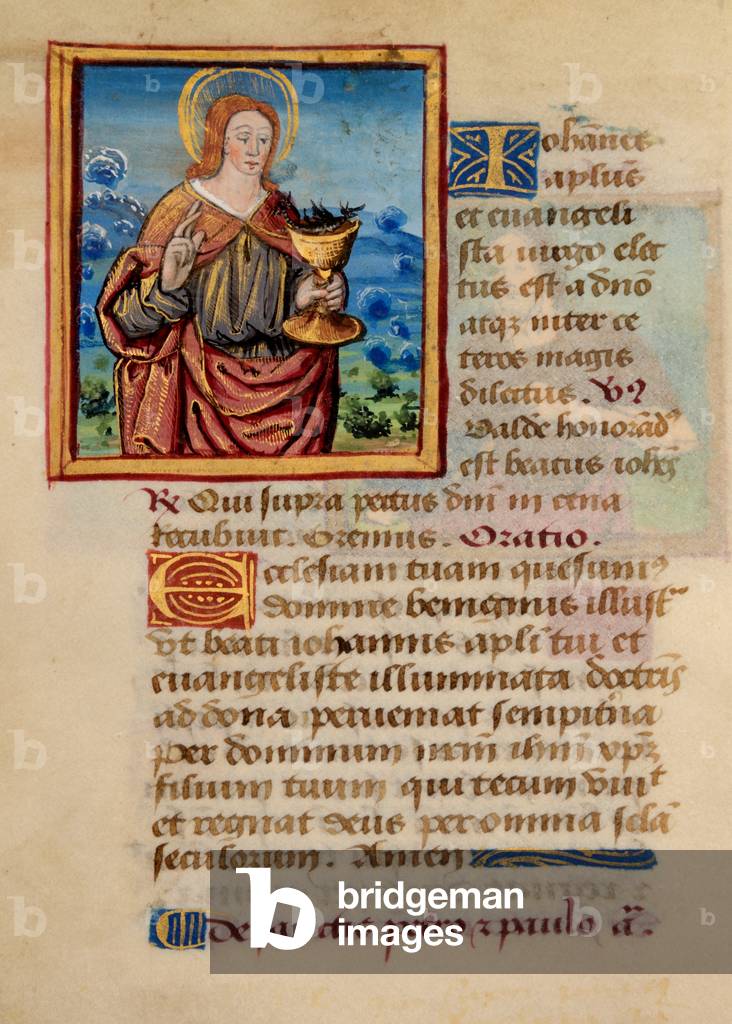 Johānes
aplūs
et euangeli
sta uirgo elec
tus est a dnō
atqȝ inter ce
teros magis
dilectus. Vꝰ
Valde honorādꝰ
est beatus iohēs
℞ Qui supra pectus dnī in cena
recubuit. Oremus. Oratio.
Ecclesiam tuam quesumꝰ
domine benignus illust̄
vt beati iohannis aplī tui et
euangeliste illuminata doctrīs
ad dona perueniat sempit̾na
per dominum nrm̄ ihm̄ xpȝ
filium tuum qui tecum viuit
et regnat deus per omnia sclā
seculorum. Amen
De petro ⁊ paulo a̅.
bridgeman
images